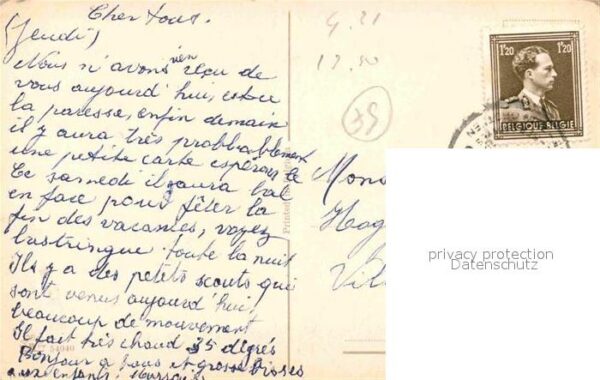 Cher tous.
(Jeudi)
Nous n'avons rien reçu de
vous aujourd'hui, est-ce
la paresse, enfin demain
il y aura très probbablement
une petite carte espérons le
Ce samedi il y aura bal
en face pour fêter la
fin des vacances, voyez
bastringue toute la nuit
Ils y a des petits scouts qui
sont venus aujourd'hui,
beaucoup de mouvement
Il fait très chaud 35 degrés
Bonjour à tous et grosse bises
aux enfants.
4.21
12.50
1'20 1'20
BELGIQUE BELGIE
Mons
Hag
Vil
privacy protection
Datenschutz